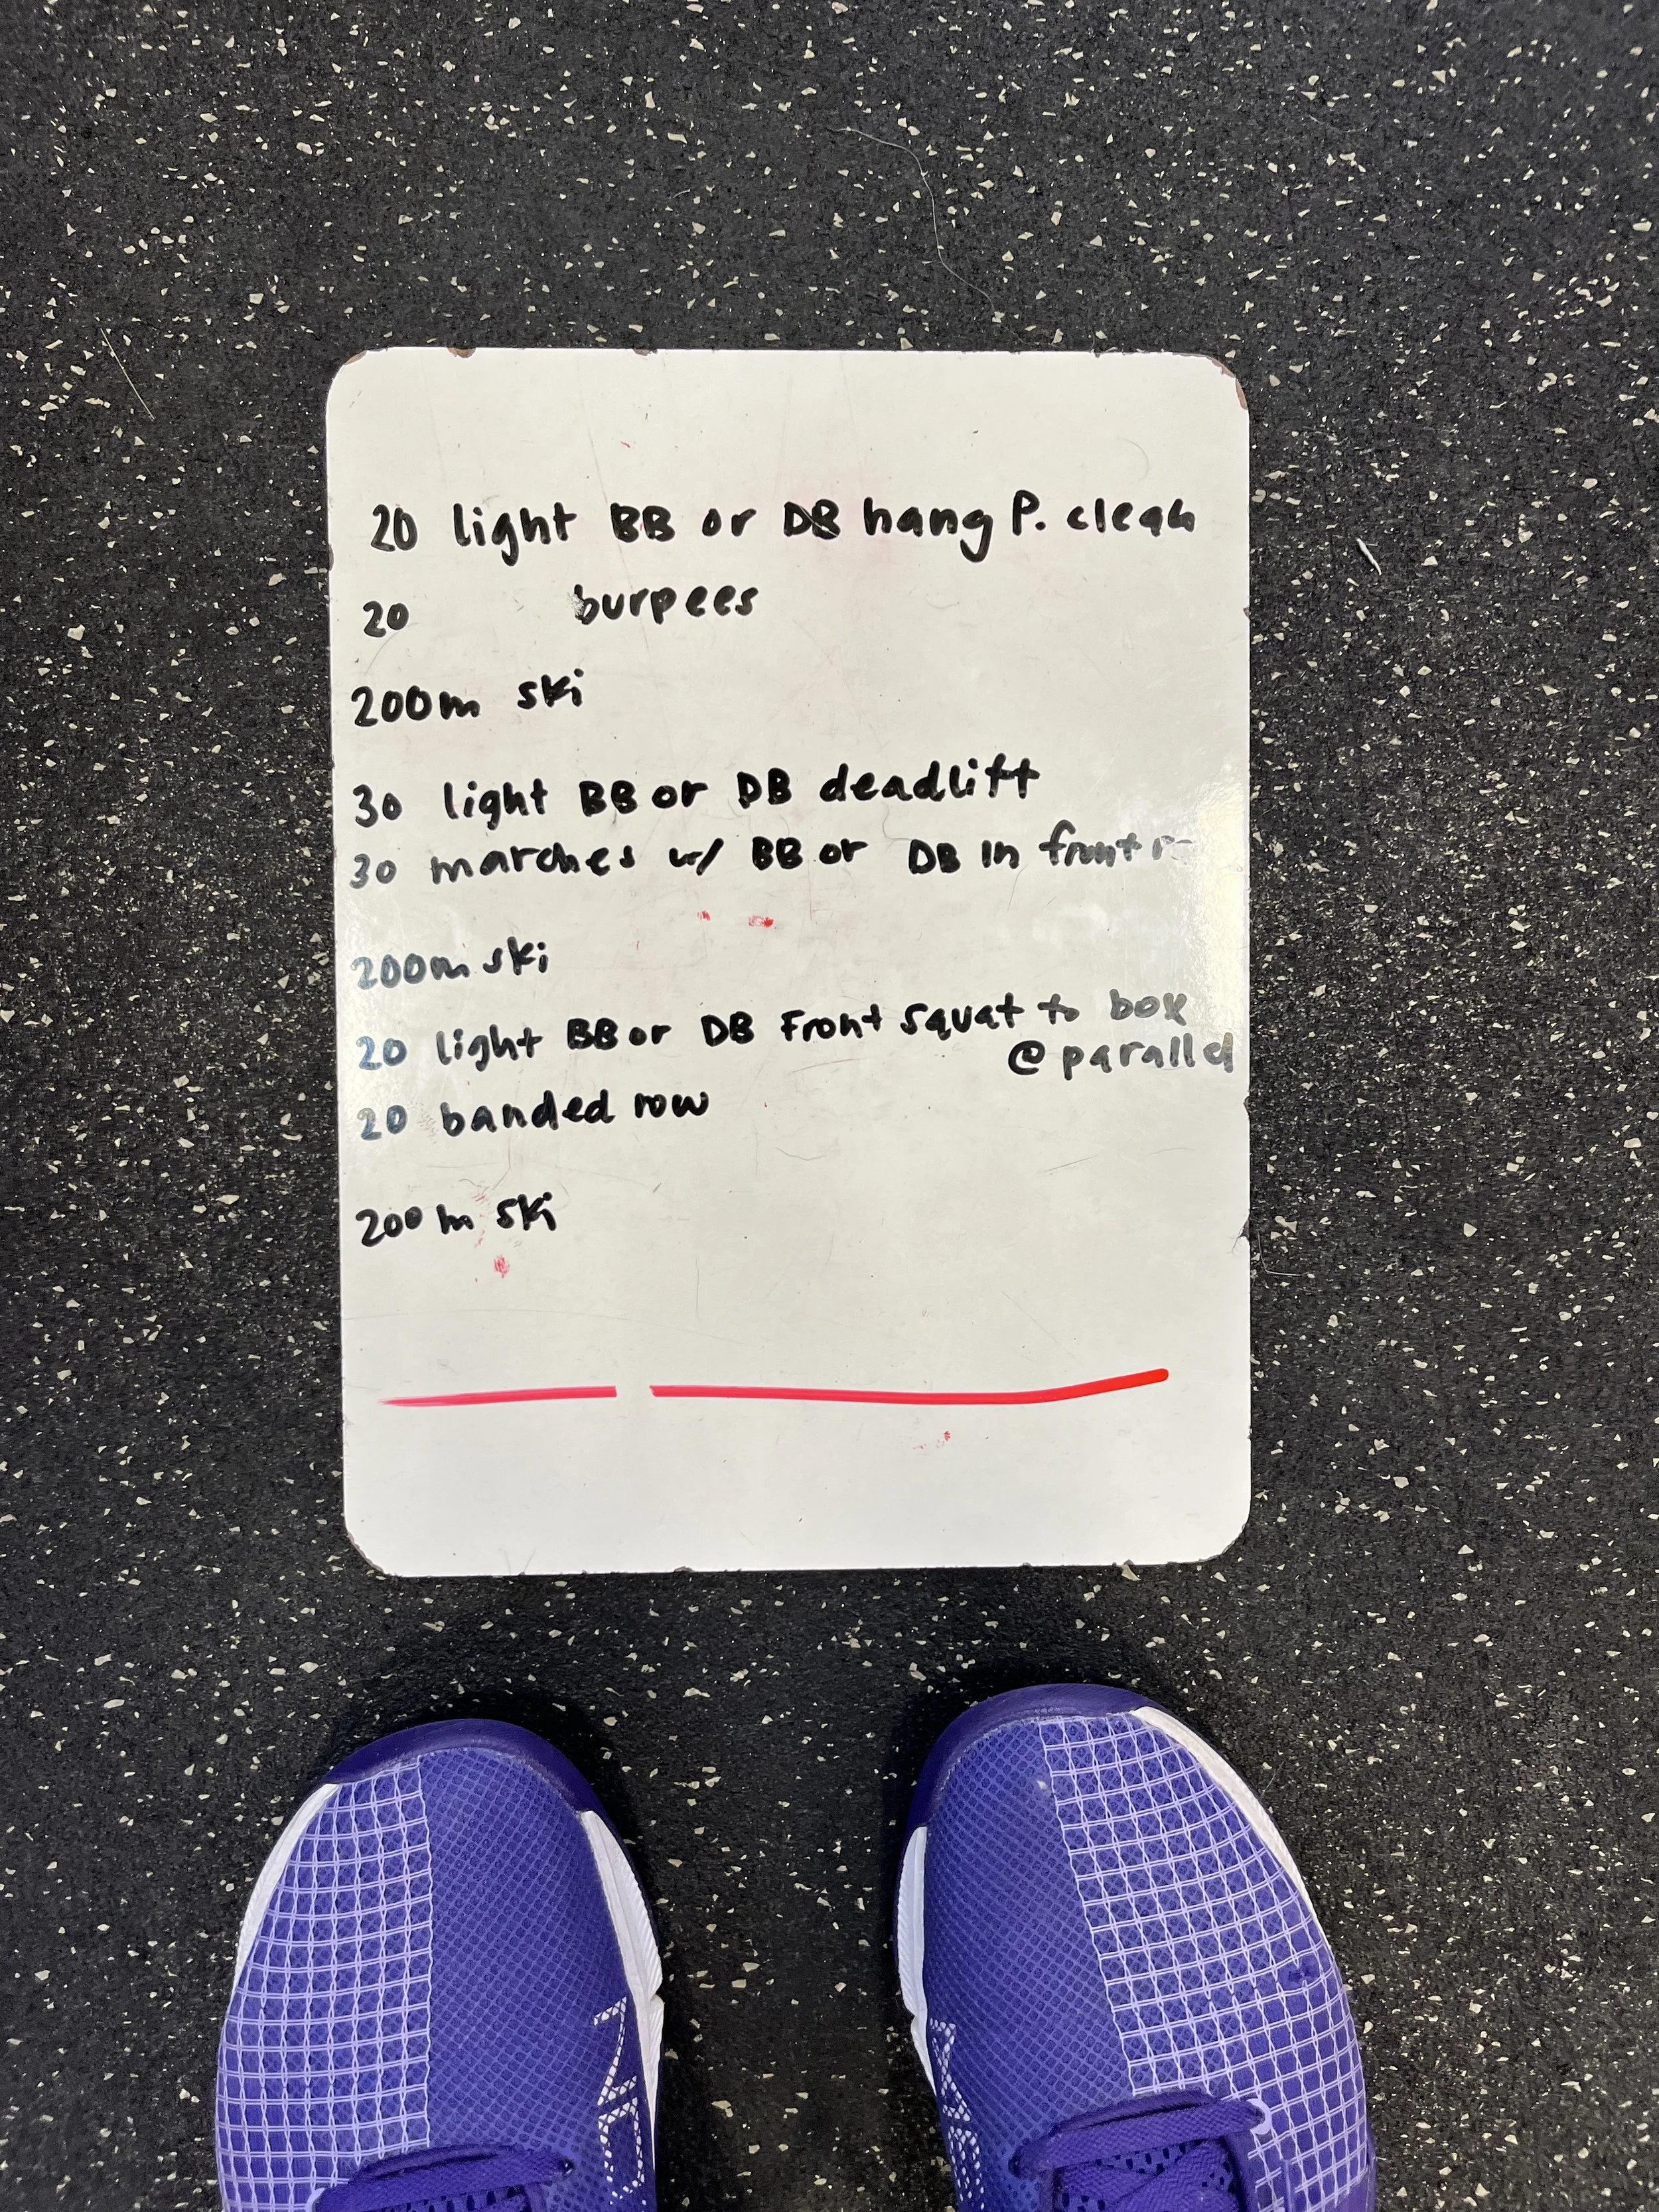 20 light BB or DB hang P. clean
20 burpees
200m ski
30 light BB or DB deadlift
30 marches w/ BB or DB in front
200m ski
20 light BB or DB Front squat to box
@ parallel
20 banded row
200m ski